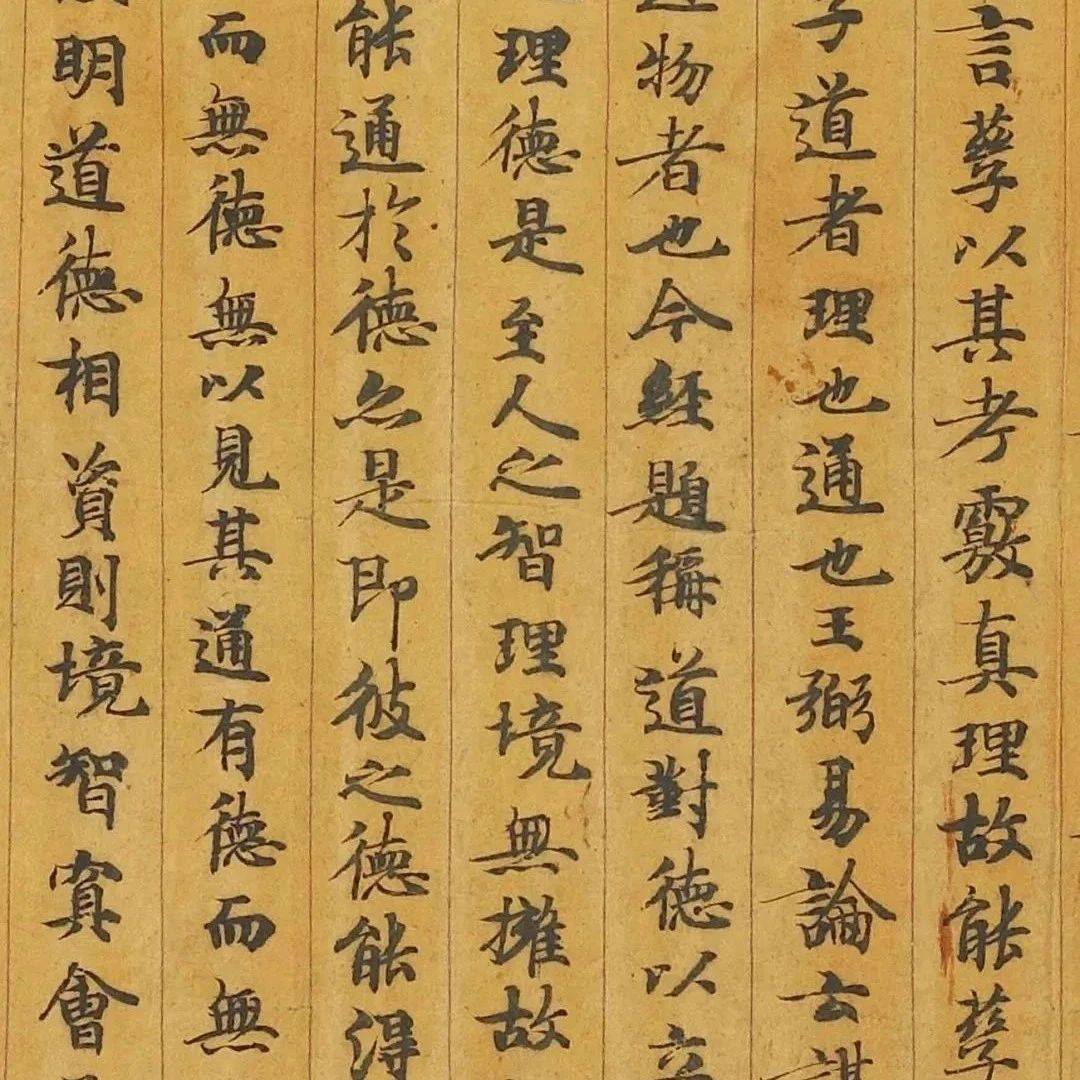 言孳以其考覈真理故能孳
子道者理也通也王弼易論云
物者也今經題稱道對德以立
理德是至人之智理境無擁故
能通於德亦是即彼之德能得
而無德無以見其通有德而無
明道德相資則境智冥會